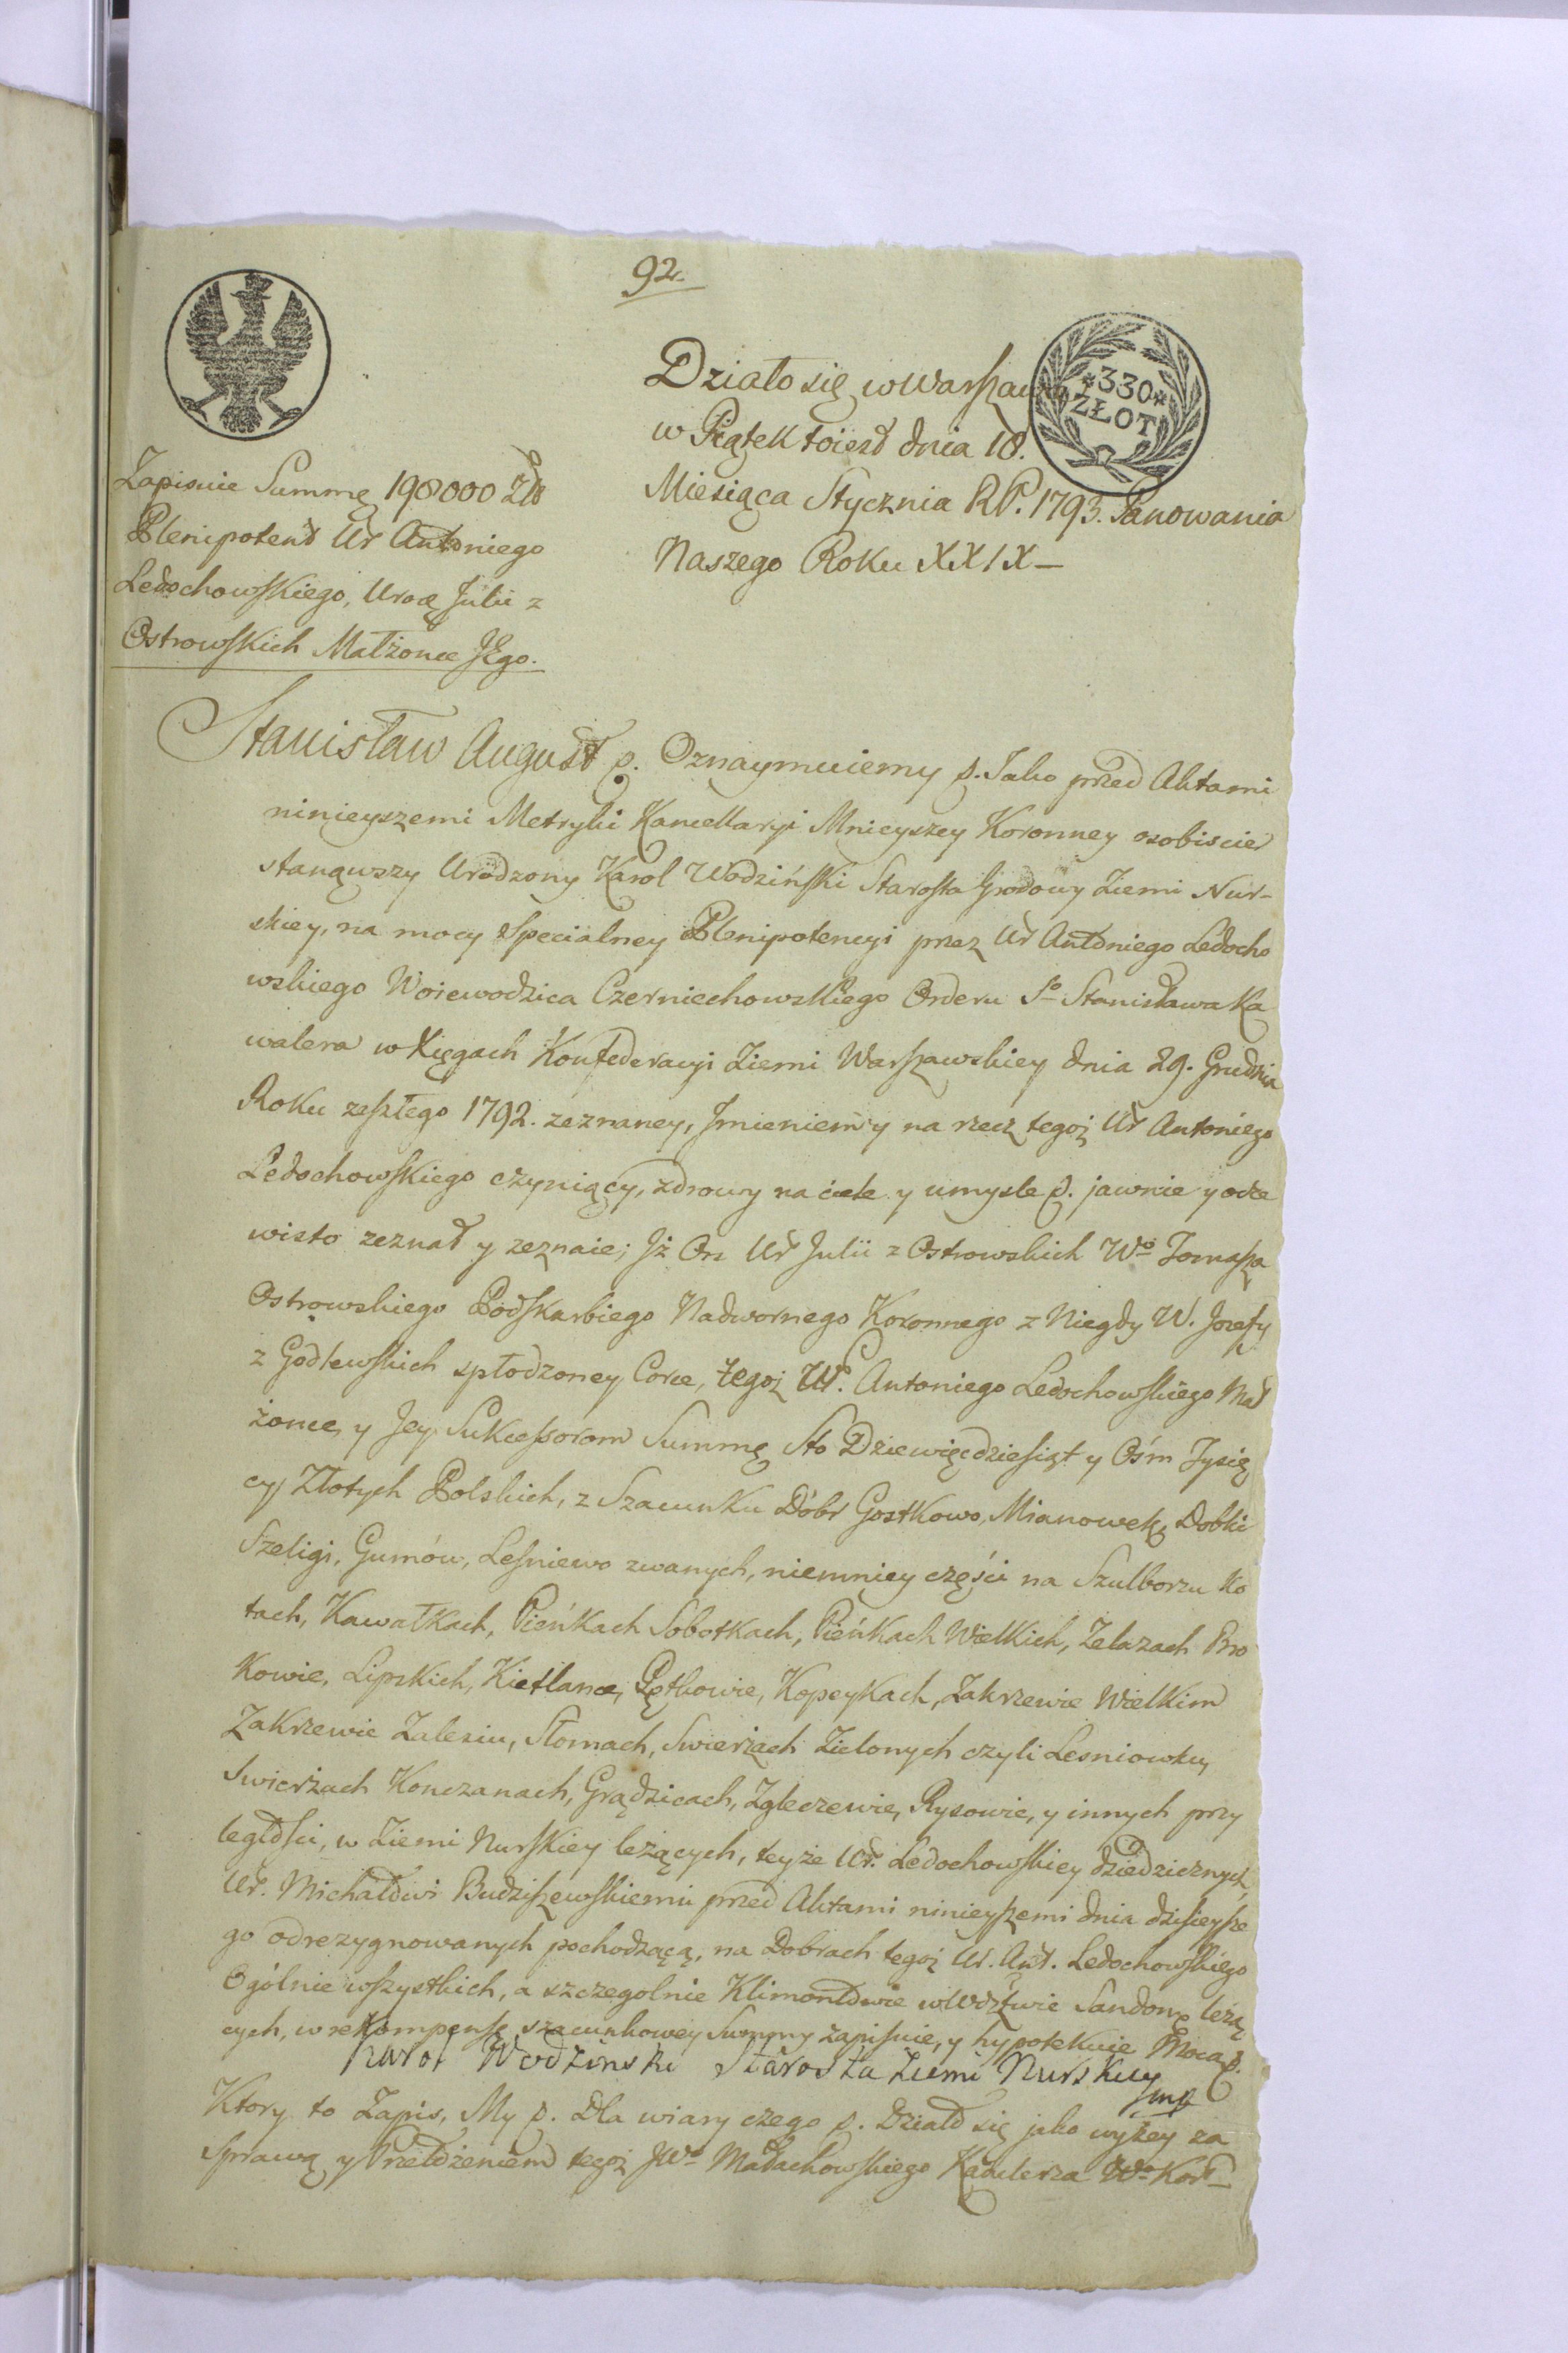 92.
Działo się w Warszawie
w Piątek toiest dnia 18.
Miesiąca Stycznia R.P. 1793. Panowania
Naszego Roku XXIX
*330*
ZŁOT
Zapisuie Summę 198000 Zło
Plenipotent Ur Antoniego
Ledochowskiego, Urod Julii z
Ostrowskich Małżonce JEgo.
Stanisław August p. Oznaymuiemy p. Iako przed Aktami
ninieyszemi Metryki Kancellaryi Mnieyszey Koronney osobiscie
stanąwszy Urodzony Karol Wodziński Starosta Grodowy Ziemi Nur-
skiey, na mocy Specialney Plenipotencyi przez Ur Antoniego Ledocho
wskiego Woiewodzica Czerniechowskiego Orderu So Stanisława Ka
walera w Xięgach Konfederacyi Ziemi Warszawskiey dnia 29. Grudnia
Roku zeszłego 1792. zeznaney, Jmieniem y na rzecz tegoż Ur Antoniego
Ledochowskiego czyniący, zdrowy na ciele y umysle p. jawnie y ocze
wisto zeznał y zeznaie; Jż On Ur Julii z Ostrowskich Wo Tomasza
Ostrowskiego Podskarbiego Nadwornego Koronnego z Niegdy W. Jozefy
z Godlewskich spłodzoney Corce, tegoż Ur. Antoniego Ledochowskiego Mał
żonce, y Jey Sukcessorom Summę Sto Dziewięcdziesiąt y Ośm Tysię
cy Złotych Polskich, z Szacunku Dóbr Gostkowo, Mianowek, Dobki
Szeligi, Gumów, Lesniewo zwanych, niemniey części na Szulborzu Ko
tach, Kawałkach, Pieńkach Sobotkach, Pieńkach Wielkich, Zelazach Bro
kowie, Lipskich, Kietlance, Pętkowie, Kopeykach, Zakrzewie Wielkim
Zakrzewie Zalesiu, Słomach, Swierżach Zielonych czyli Lesniowku,
Swierżach Konczanach, Grądzicach, Zgleczewie, Rysowie, y innych przy
ległości, w Ziemi Nurskiey leżących, teyże Ur. Ledochowskiey dziedzicznych
Ur. Michałowi Budziszewskiemu przed Aktami ninieyszemi dnia dzisieysze
go odrezygnowanych pochodzącą, na Dobrach tegoż Ur. Ant. Ledochowskiego
Ogólnie wszystkich, a szczegolnie Klimontowie w Wdztwie Sandom leżą
cych, w rekompensę szacunkowey Summy zapisuie, y hypotekuie Mocą p.
Karol Wodzinski Starosta Ziemi Nurskiey
mp
Ktory to Zapis, My p. Dla wiary czego p. Działo się jako wyżey za
Sprawą y Przełożeniem tegoż JWo Małachowskiego Kanclerza Wo Kor